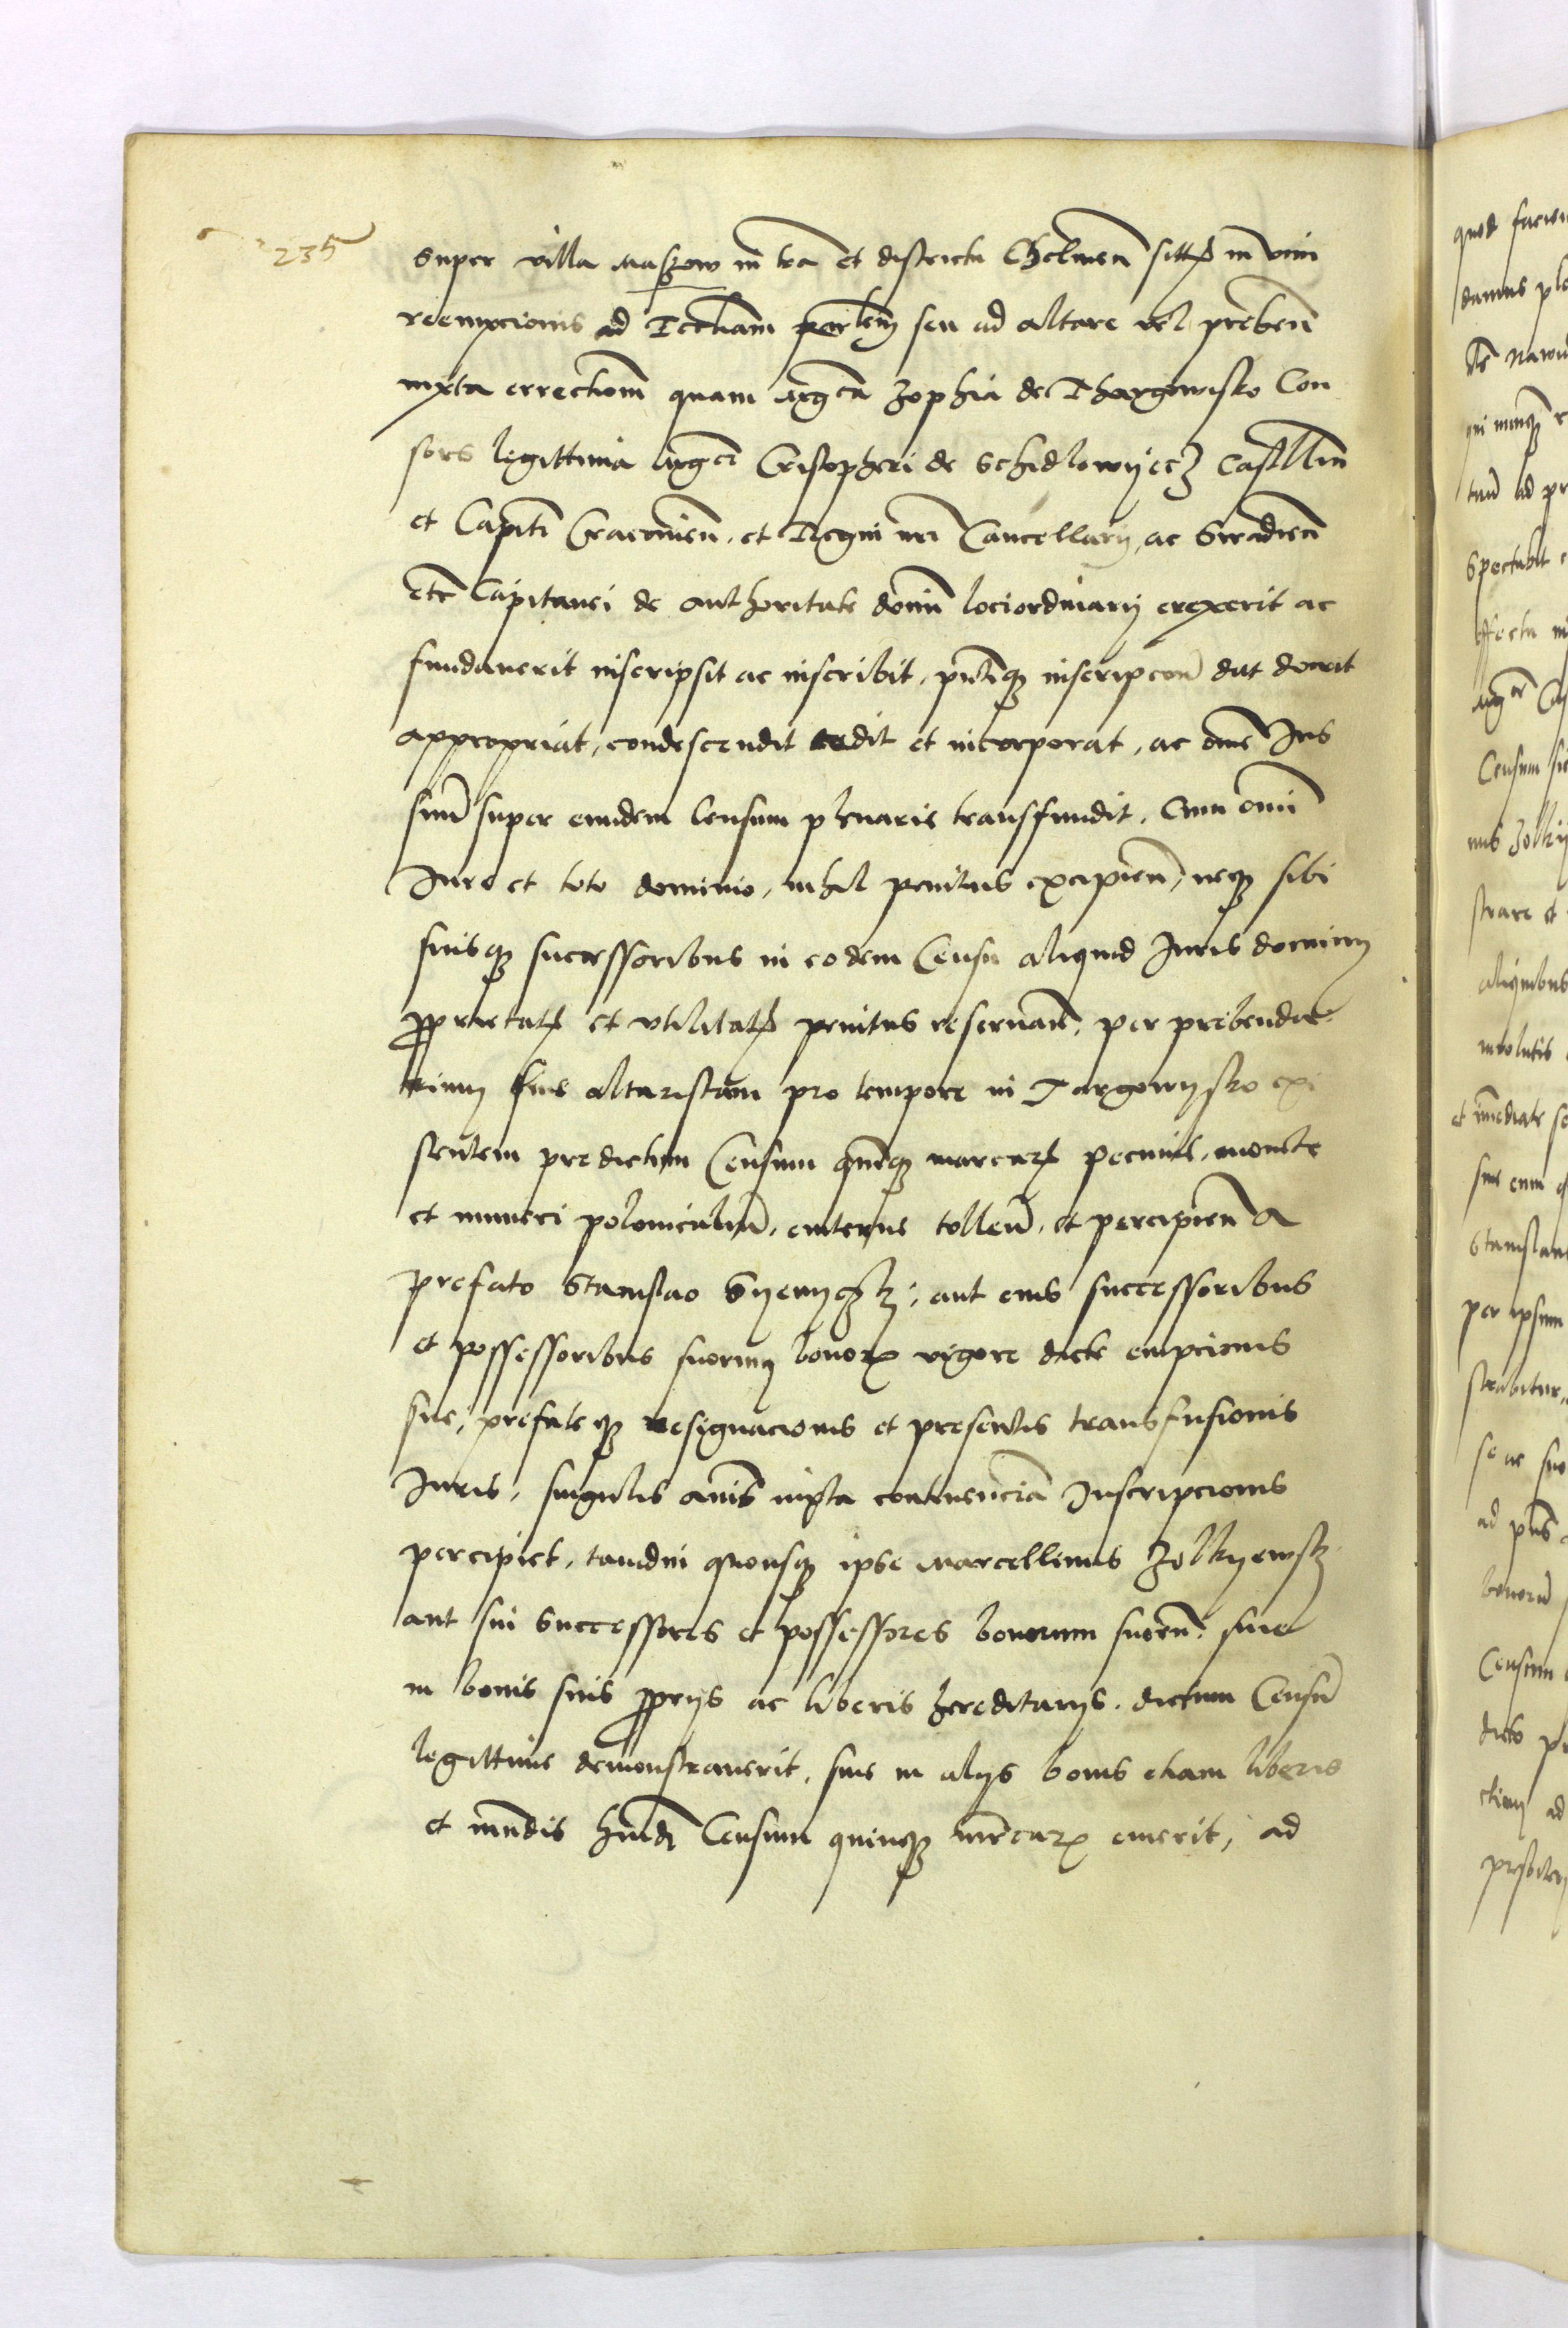 235
super villa Maszow in terra et districtu Chelmen sitt in vim
reempcionis ad Eccliam parlem seu ad altare vel preben
iuxta errectiom quam mgca Zophia de Thargowisko Con
sors legittima mgci Cristopheri de Schidlowyecz Castllni
et Capiti Cracovien. et Regni nri Cancellarij, ac Siradien
etc Capitanei de authoritate domini lociordinarij erexerit ac
fundaverit inscripsit ac inscribit, pntiq inscripcone dat donat
appropriat, condescendit cedit et incorporat, ac ome Ius
suum super eundem Censum plenarie transfundit. Cum omni
Iure et toto dominio, nihil penitus excipien, neq sibi
suisq successoribus in eodem Censu aliquid Iuris dominij
proprietat et utilitat penitus reservan, per prebenda
rium sive altaristam pro tempore in Targowysko exi
stentem predictum Censum quinq marcar pecunie, monete
et numeri polonicalium, emtenus tollen, et percipien a
prefato Stanislao, aut eius successoribus
et possessoribus suorum bonor vigore dicte empcionis
sue, prefateq resignacionis et presentis transfusionis
Iuris, singulis annis iuxta continenciam Inscripcionis
percipiet, tamdiu quousq ipse Marcellinus Zolkyewsk
aut sui Successores et possessores bonorum suorum, sive
in bonis suis proprijs ac liberis hereditarijs, dictum Censum
legittime demonstraverit, sive in alijs bonis etiam liberis
et mundis huiusmodi Censum quinq marcar emerit, ad